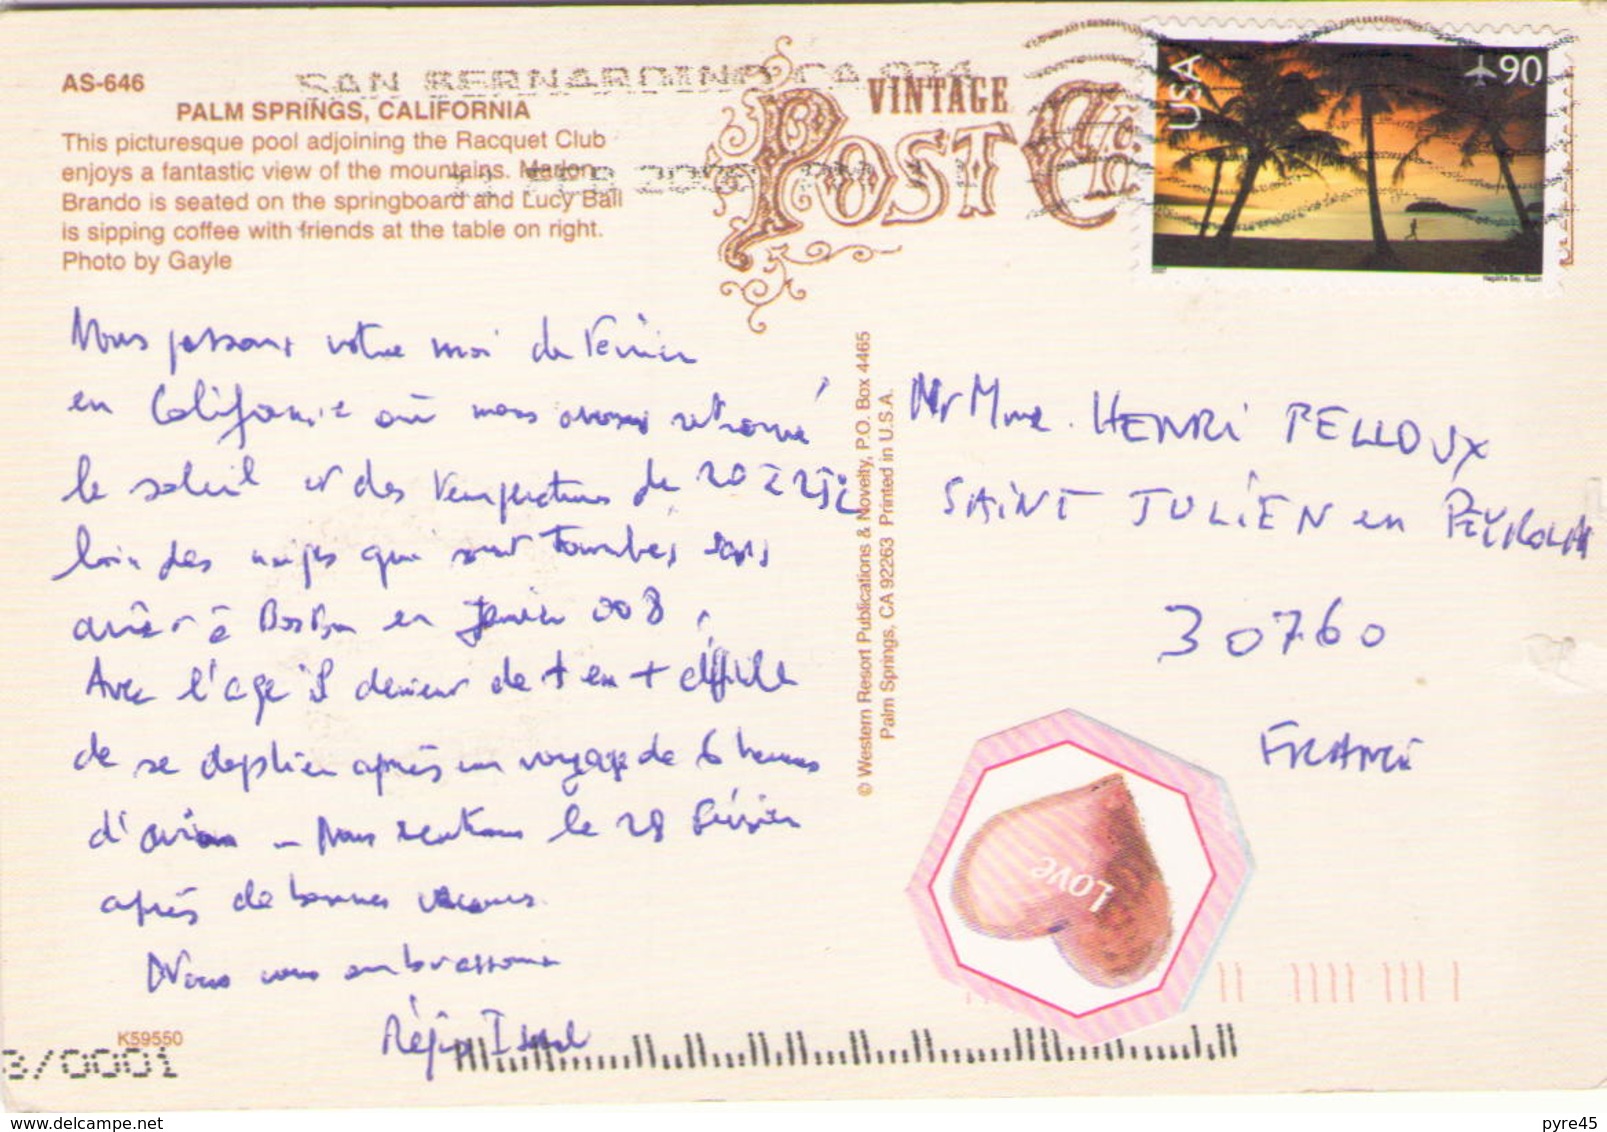 AS-646
PALM SPRINGS, CALIFORNIA
This picturesque pool adjoining the Racquet Club
enjoys a fantastic view of the mountains. Marlon
Brando is seated on the springboard and Lucy Ball
is sipping coffee with friends at the table on right.
Photo by Gayle
SAN BERNARDINO CA 924
VINTAGE
POST
USA
90
Nous passons notre moi de Février
en Californie où nous avons retrouvé
le soleil et des températures de 20 à 25°C
loin des neiges qui sont tombées sans
arrêt à Boston en Janvier 008.
Avec l'age il devient de + en + difficile
de se déplier après un voyage de 6 heures
d'avion - Nous rentrons le 28 Février
après de bonnes vacances.
Nous vous embrassons
Régis
© Western Resort Publications & Novelty, P.O. Box 4465
Palm Springs, CA 92263 Printed in U.S.A.
Mr Mme. HENRI PELLOUX
SAINT JULIEN en PEYROLAS
30760
FRANCE
Love
K59550
8/0001
pyre45